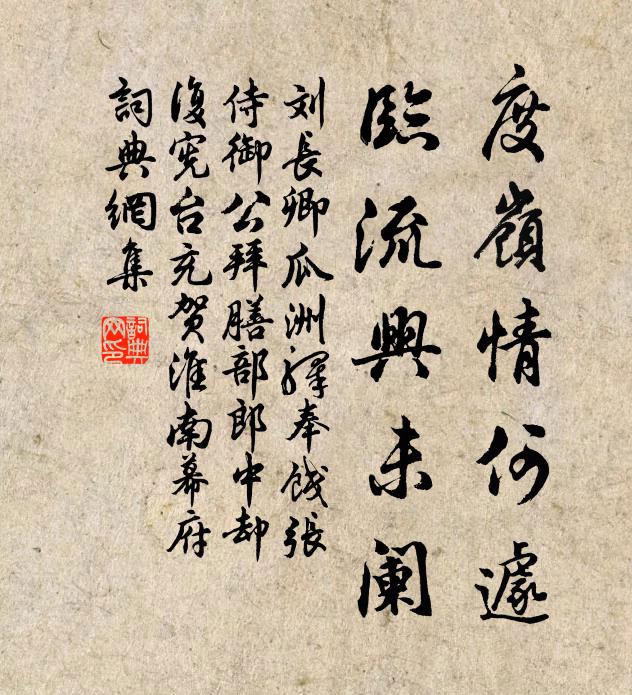 度嶺情何遽
臨流興未阑
刘長卿瓜洲驛奉餞張
侍御公拜膳部郎中却
復宪台充贺淮南幕府
詞典網集
詞典網印